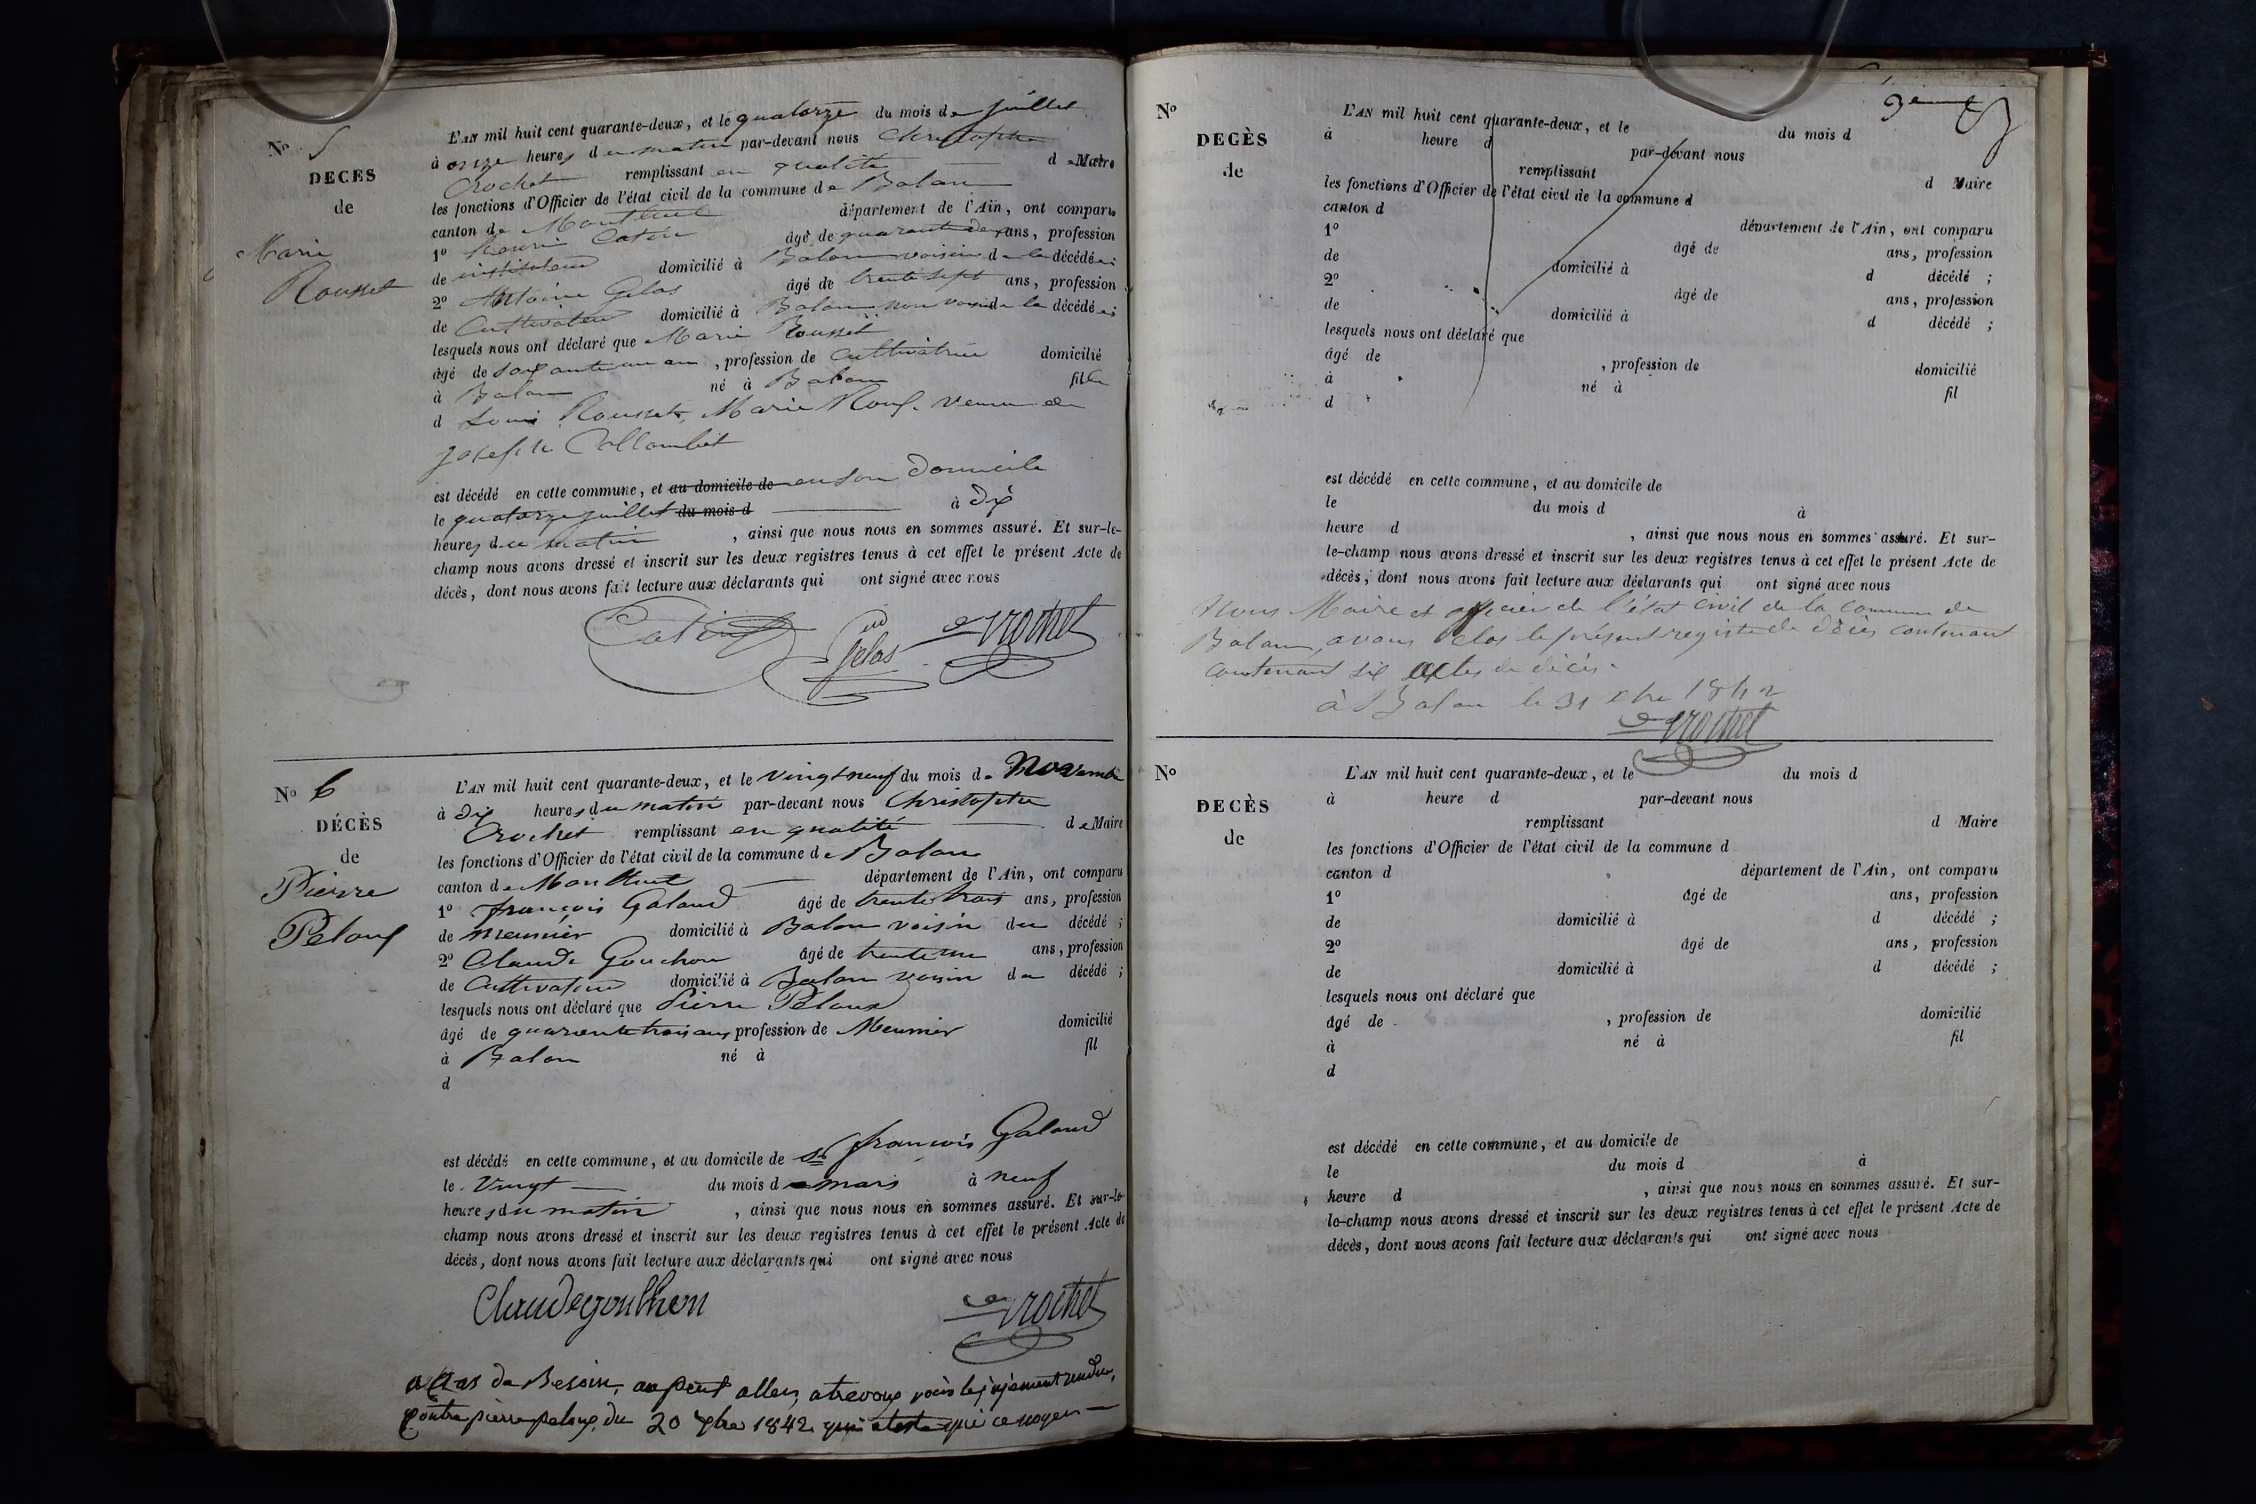 No 5
DECES
de
Marie
Rousset
L'AN mil huit cent quarante-deux, et le quatorze du mois de juillet
à onze heures du matin par-devant nous Christophe
Crochet remplissant en qualité de Maire
les fonctions d'Officier de l'état civil de la commune de Balan
canton de Montluel département de l'Ain, ont comparu
1o Catin âgé de quarante deux ans, profession
de instituteur domicilié à Balan voisin de la décédée;
2o Antoine Gelas âgé de trente sept ans, profession
de Cultivateur domicilié à Balan non voisin de la décédée;
lesquels nous ont déclaré que Marie Rousset
âgé de soixante un an, profession de Cultivatrice domicilié
à Balan né à Balan fille
d Louis Rousset, Marie veuve de
Joseph Collombet
est décédé en cette commune, et au domicile de en son Domicile
le quatorze juillet du mois d à dix
heures du matin, ainsi que nous nous en sommes assuré. Et sur-le-
champ nous avons dressé et inscrit sur les deux registres tenus à cet effet le présent Acte de
décès, dont nous avons fait lecture aux déclarants qui ont signé avec nous
Catin Gelas Crochet
No 6
DÉCÈS
de
Pierre
Peloux
L'AN mil huit cent quarante-deux, et le vingt neuf du mois de Novembre
à dix heures du matin par-devant nous Christophe
Crochet remplissant en qualité de Maire
les fonctions d'Officier de l'état civil de la commune de Balan
canton de Montluel département de l'Ain, ont comparu
1o françois Galand âgé de trente trois ans, profession
de meunier domicilié à Balan voisin du décédé;
2o Claude Gouchon âgé de trente un ans, profession
de Cultivateur domicilié à Balan voisin du décédé;
lesquels nous ont déclaré que Pierre Peloux
âgé de quarante trois ans profession de Meunier domicilié
à Balan né à fil
d
est décédé en cette commune, et au domicile de Sr françois Galand
le Vingt du mois de mars à neuf
heures du matin, ainsi que nous nous en sommes assuré. Et sur-le-
champ nous avons dressé et inscrit sur les deux registres tenus à cet effet le présent Acte de
décès, dont nous avons fait lecture aux déclarants qui ont signé avec nous
Claude gouthon Crochet
a Cas de Besoin, on peut aller, atrevoux voir le jujement rendu,
Contre pierre peloux, du 20 1842
No
DECÈS
de
L'AN mil huit cent quarante-deux, et le du mois d
à heure d par-devant nous
remplissant d Maire
les fonctions d'Officier de l'état civil de la commune d
canton d département de l'Ain, ont comparu
1o âgé de ans, profession
de domicilié à d décédé;
2o âgé de ans, profession
de domicilié à d décédé;
lesquels nous ont déclaré que
âgé de , profession de domicilié
à né à fil
d
est décédé en cette commune, et au domicile de
le du mois d à
heure d , ainsi que nous nous en sommes assuré. Et sur-
le-champ nous avons dressé et inscrit sur les deux registres tenus à cet effet le présent Acte de
décès, dont nous avons fait lecture aux déclarants qui ont signé avec nous
Nous Maire et officier de l'état civil de la Commune de
Balan, avons clos le présent registre de décès contenant
contenant six actes de décès.
à Balan le 31 xbre 1842
Crochet
No
DECÈS
de
L'AN mil huit cent quarante-deux, et le du mois d
à heure d par-devant nous
remplissant d Maire
les fonctions d'Officier de l'état civil de la commune d
canton d département de l'Ain, ont comparu
1o âgé de ans, profession
de domicilié à d décédé;
2o âgé de ans, profession
de domicilié à d décédé;
lesquels nous ont déclaré que
âgé de , profession de domicilié
à né à fil
d
est décédé en cette commune, et au domicile de
le du mois d à
heure d , ainsi que nous nous en sommes assuré. Et sur-
le-champ nous avons dressé et inscrit sur les deux registres tenus à cet effet le présent Acte de
décès, dont nous avons fait lecture aux déclarants qui ont signé avec nous